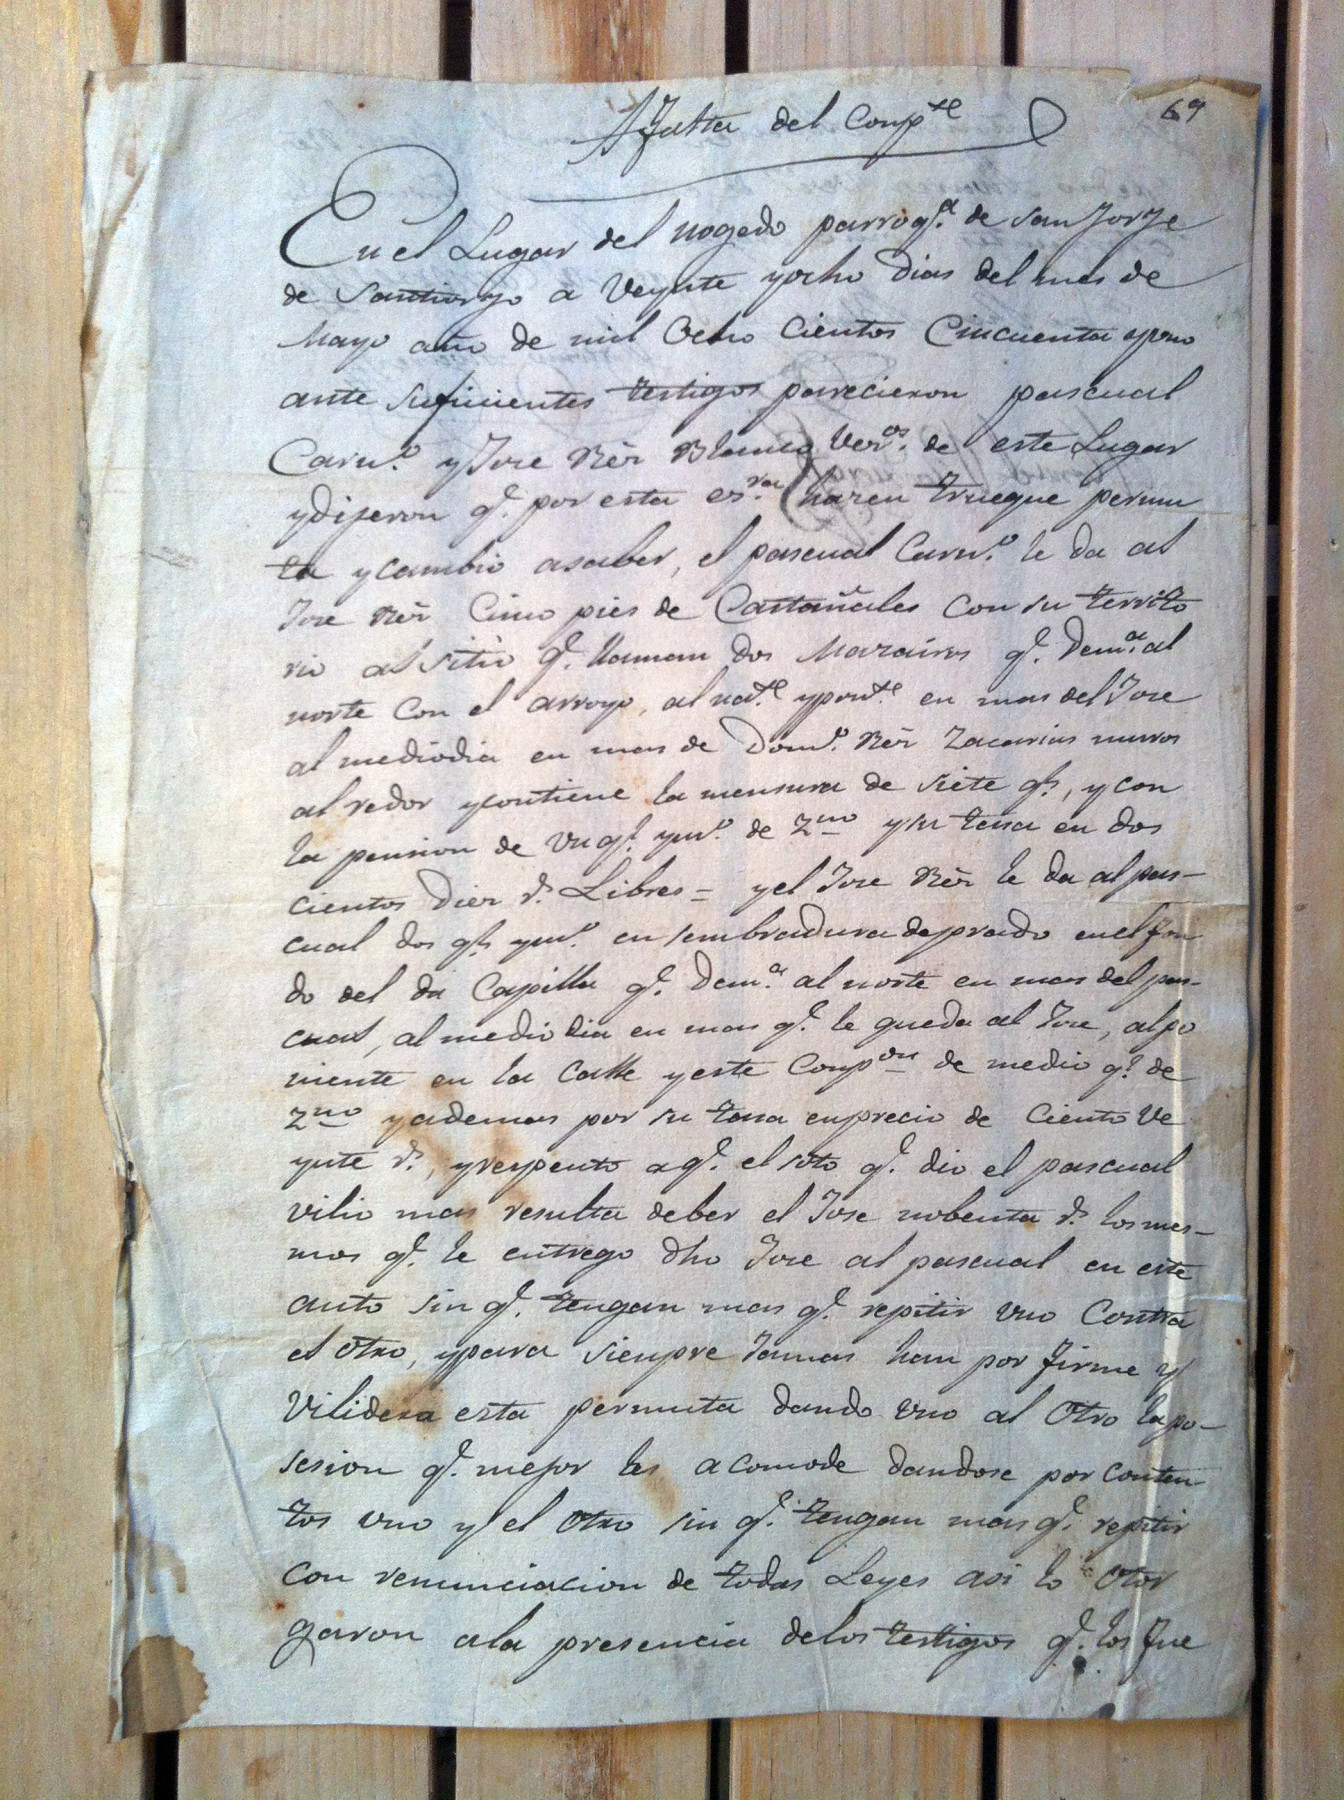 A falta del Comp.te
69
En el Lugar del nogedo parroq.a de san Jorje
de Santiorjo a Veynte yocho Dias del mes de
Mayo año de mil Ocho Cientos Cincuenta yuno
ante suficientes testigos parecieron pascual
Carn.o y Jose Rèr Blanco Ver.os de este Lugar
ydijeron q.e por esta es.ra hazen trueque permu
ta ycambio asaber, el pascual Carn.o le da al
Jose Rèr Cinco pies de Castañales Con su territo
rio al sitio q.e llaman dos Mazairos q.e Dem.a al
norte Con el arroyo, al nat.te ypon.te en mas del Jose
al mediodia en mas de Dom.o Rèr Zacarias muros
al redor ycontiene la mensura de siete q.s, y con
la pension de Un q.l ym.o de Z.no ysu tasa en dos
cientos Diez r.s Libres = yel Jose Rèr le da al pas-
cual dos q.s ym.o en sembradura de prado en el fon
do del da Capilla q.e Dem.a al norte en mas del pas-
cual, al medio dia en mas q.e le queda al Jose, al po
niente en la Calle yeste Comp.on de medio q.l de
Z.no yademas por su tasa en precio de Ciento Ve
ynte r.s, yrespeuto a q.e el soto q.e dio el pascual
vilio mas resulta deber el Jose nobenta r.s los mes-
mos q.e le entrego dho Jose al pascual en este
auto sin q.e tengan mas q.e repitir uno Contra
el Otro, ypara siempre Jamas han por firme y
Vilidera esta permuta dando uno al Otro la po-
sesion q.e mejor les acomode dandose por Conten
tos uno y el Otro sin q.e tengan mas q.e repitir
Con renunciacion de todas Leyes asi lo Otor
garon ala presencia delos testigos q.e los fue